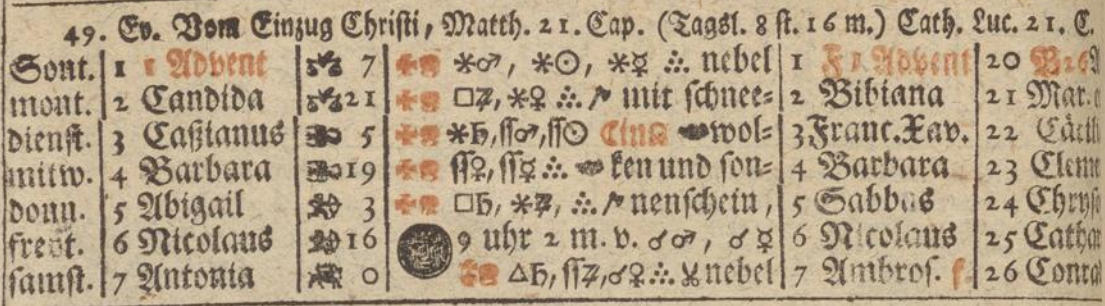 49. Ev. Vom Einzug Christi, Matth. 21. Cap. (Tagsl. 8 st. 16 m.) Cath. Luc. 21. C.
Sont. 1 1 Advent 7 ⚹♂, ⚹☉, ⚹☿ ∴ nebel 1 F 1 Advent 20
mont. 2 Candida 21 □♃, ⚹♀ ∴ mit schnee= 2 Bibiana 21 Mar.
dienst. 3 Caßianus 5 ⚹♄, ſſ♂, ſſ☉ wol= 3 Franc. Xav. 22 Cäcili
mitw. 4 Barbara 19 ſſ♀, ſſ☿ ∴ ken und son= 4 Barbara 23 Cleme
donn. 5 Abigail 3 □♄, ⚹♃, ∴ nenschein, 5 Sabbas 24 Chryso
freyt. 6 Nicolaus 16 9 uhr 2 m. v. ☌♂, ☌☿ 6 Nicolaus 25 Catha
samst. 7 Antonia 0 △♄, ſſ♃, ☌♀ ∴ nebel 7 Ambros. f. 26 Conra